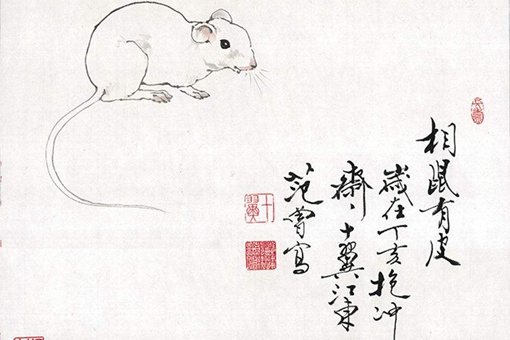 相鼠有皮
歲在丁亥抱冲
齋主十翼江東
范曾寫
十翼